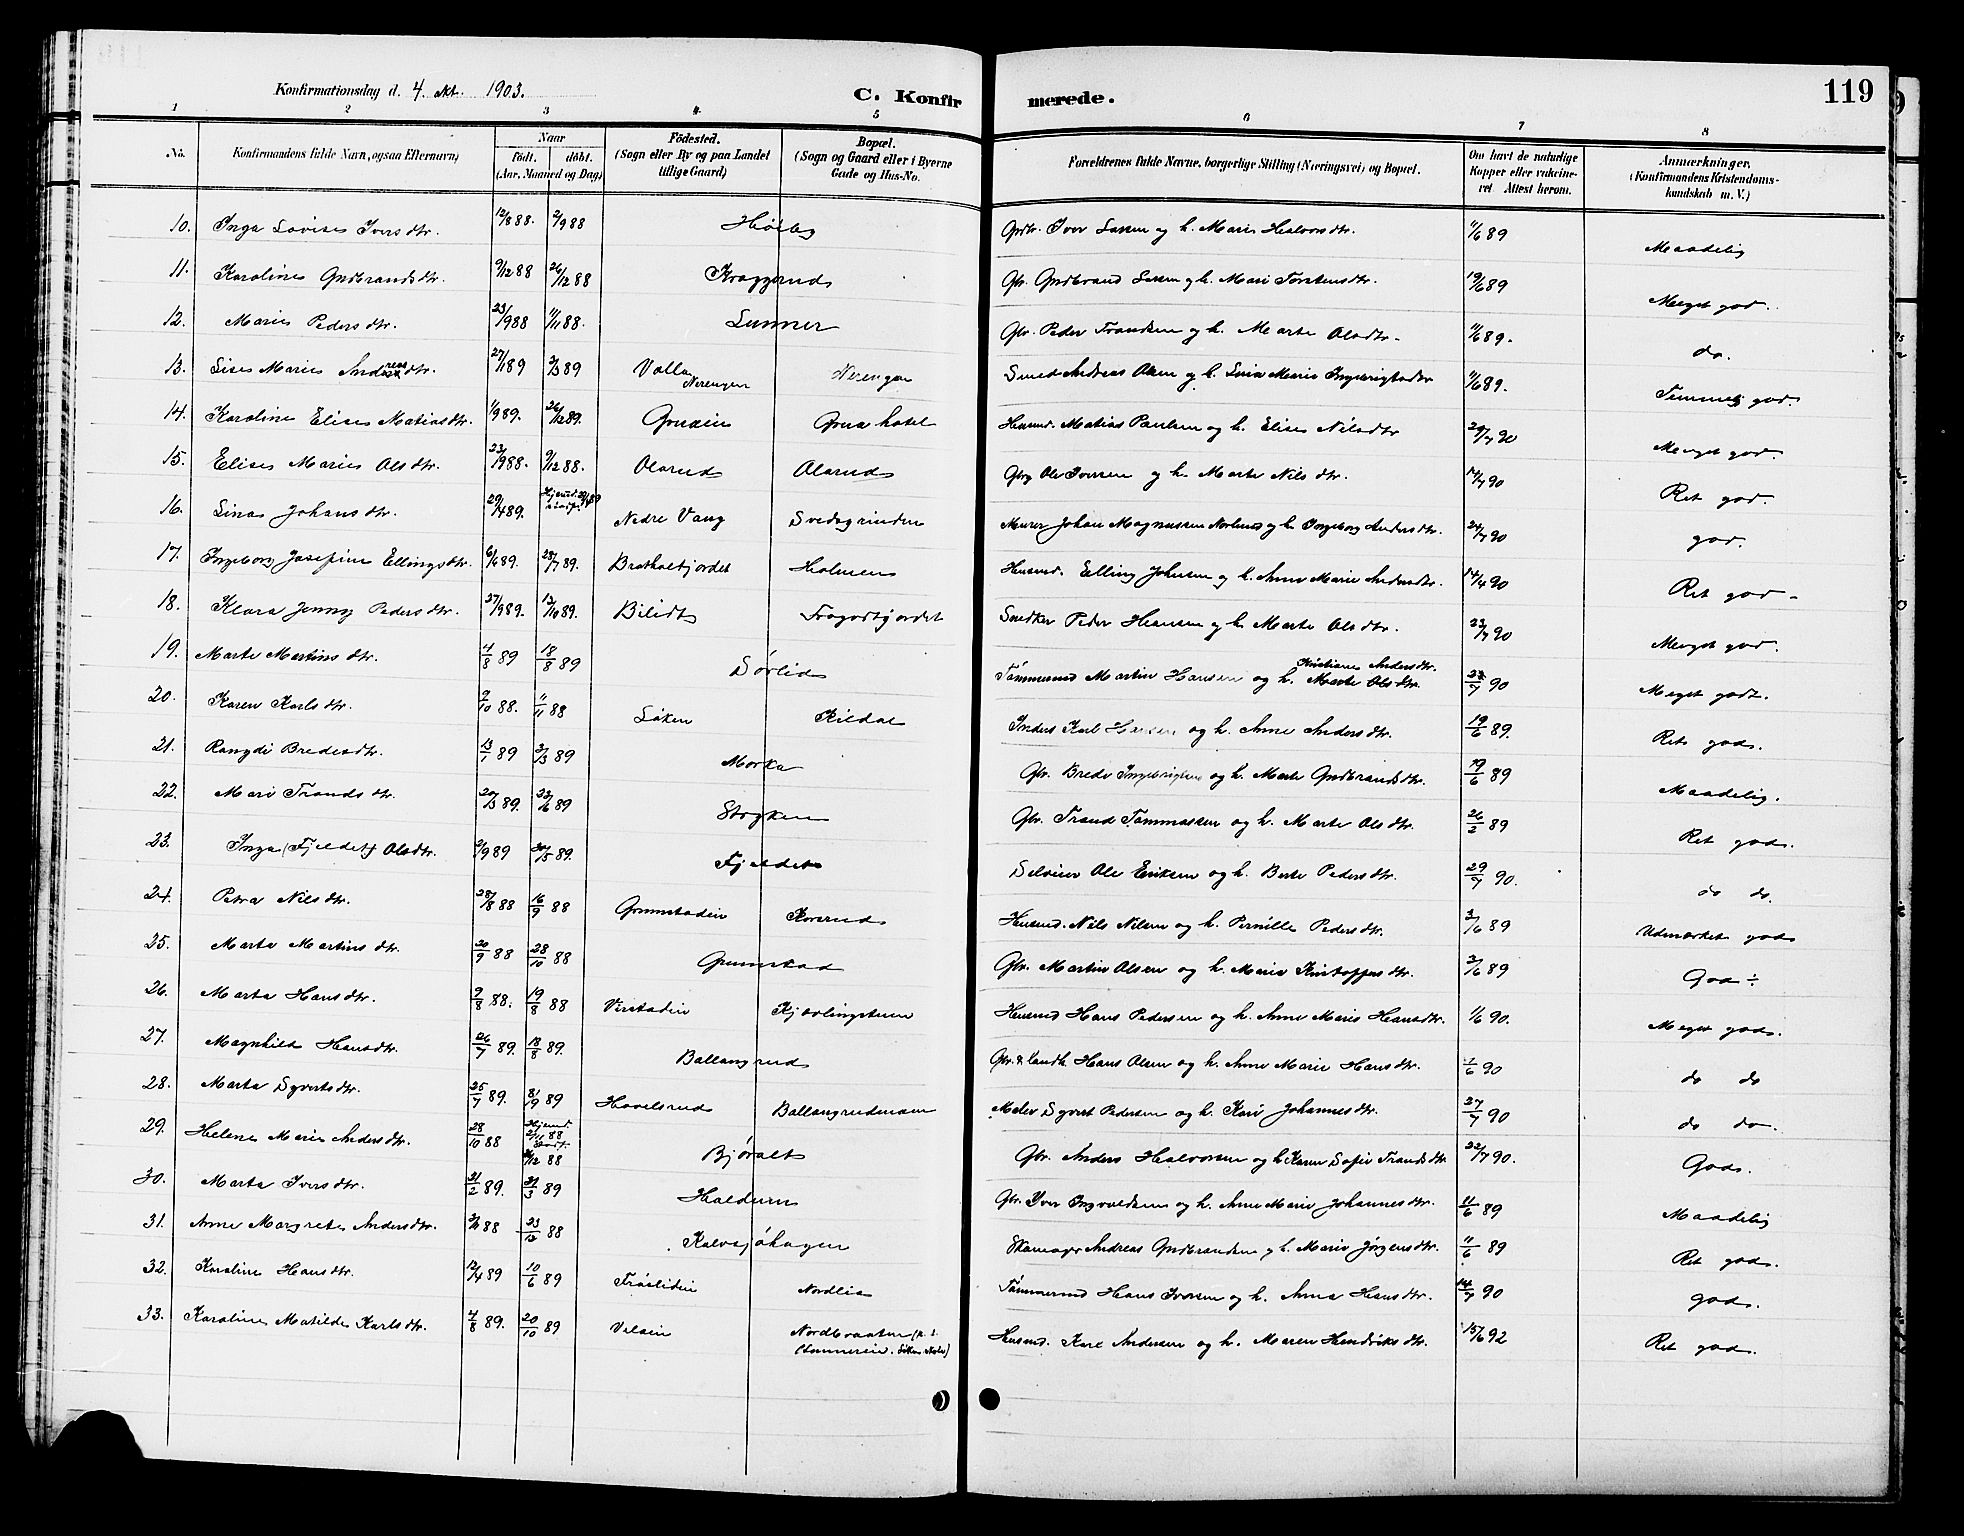 Konfirmationsdag d. 4. okt. 1903.
C. Konfirmerede.
119
1 2 3 4 5 6 7 8
No. Konfirmandens fulde Navn, ogsaa Efternavn) Naar født. døbt. (Aar, Maaned og Dag) Födested. (Sogn eller By og paa Landet tillige Gaard) Bopæl. (Sogn og Gaard eller i Byerne Gade og Hus-No. Forældrenes fulde Navne, borgerlige Stilling (Næringsvei) og Bopæl. Om havt de naturlige Kopper eller vakcineret. Attest herom. Anmærkninger. (Konfirmandens Kristendomskundskab m. V.)
10. Inga Lovise Iversdtr. 12/8 88. 2/9 88 Høiby Gbr. Iver Larsen og h. Marie Halvorsdtr. 11/6 89 Maadelig
11. Karoline Gudbrandsdtr. 9/12 88 26/12 88 Kraggerud Gbr. Gudbrand Larsen og h. Mari Torstensdtr. 19/6 89 Meget god.
12. Marie Pedersdtr. 23/9 88 11/11 88. Lunner Gbr. Peder Trondsen og h. Marte Olsdtr. 11/6 89. do.
13. Lise Marie Andreasdtr. 27/1 89 3/3 89 Volla Nerengen Nerengen Smed Andreas Olsen og h. Lina Marie Ingebrigtsdtr 11/6 89. Temmelig god.
14. Karoline Elise Matiasdtr. 1/9 89. 26/12 89. Gruaeie Grua hotel Husmd. Matias Paulsen og h. Elise Nilsdtr 29/7 90 Meget god.
15. Elise Marie Olsdtr. 23/9 88. 9/12 88. Olarud Olarud Gbr. Ole Iversen og h. Marte Nilsdtr. 14/7 90 Ret god.
16. Lina Johansdtr. 29/4 89. Nedre Vang Svedsgrinden Murer Johan Magnussen Norlund og h. Ingeborg Andersdtr. 24/7 90 god.
17. Ingeborg Josefine Ellingsdtr. 6/6 89. 28/7 89. Bratholtfjordet Holmen Husmd. Elling Johnsen og h. Anne Marie Andersdtr. 14/4 90 Ret god
18. Klara Jenny Pedersdtr. 27/9 89. 13/10 89. Bilidt Snedker Peder Hansen og h. Marte Olsdtr. 23/7 90 Meget god.
19. Marte Martinsdtr. 4/8 89 18/8 89 Sørlie Tømmermd Martin Hansen og h. Kristiane Andersdtr. Marte Olsdtr. 90 Meget godt.
20. Karen Karlsdtr. 7/10 88. 11/11 88 Søken Kildal Inders Karl Hansen og h. Anne Andersdtr. 19/6 89. Ret god.
21. Rangdi Bredesdtr. 13/1 89 3/3 89 Morka Gbr. Brede Ingebrigtsen og h. Marte Gudbrandsdtr. 19/6 89 Maadelig.
22. Mari Trondsdtr. 20/3 89. 23/6 89 Stryken Gbr. Trond Tommassen og h. Marte Olsdtr. 26/2 89 Ret god.
23. Inga (Fjeldet) Olsdtr. 89 89. Fjeldet Selveier Ole Eriksen og h. Berte Pedersdtr. 29/7 90. do do.
24. Petra Nilsdtr. 28/8 88 16/9 88 Grimstadeie Korsrud Husmd. Nils Nilsen og h. Pernille Pedersdtr. 3/6 89 Udmærket god
25. Marte Martinsdtr. 20/9 88 28/10 88 Grimstad Gbr. Martin Olsen og h. Marie Kristoffersdtr. 3/6 89 God ÷
26. Marta Hansdtr. 9/8 88. 19/8 88 Virstadeie Kjøvlingstuen Husmd Hans Pedersen og h. Anne Marie Hansdtr. 1/6 90. Meget god.
27. Magnhild Hansdtr. 26/7 89. 18/8 89. Ballangrud Gbr. & landh. Hans Olsen og h. Anne Marie Hansdtr. 1/6 90 do do
28. Marta Syvertsdtr. 25/7 89. 89 Hovelsrud Ballangrudmoen Maler Syvert Pedersen og h. Kari Johannesdtr. 27/7 90 do do.
29. Helene Marie Andersdtr. 28/10 88 Hjemd. 2/11 88 26/12 88 Bjøralt Gbr. Anders Halvorsen og h. Karen Sofie Trondsdtr 22/7 90. God.
30. Marta Iversdtr. 21/2 89. 31/3 89 Haldum Gbr. Iver Ingvaldsen og h. Anne Marie Johannesdtr. 11/6 89 Maadelig
31. Anne Margrete Andersdtr. 88 23/12 88 Kalvsjøhagen Skomager Andreas Gudbrandsen og h. Marie Jørgensdtr. 11/6 89 Ret god.
32. Karoline Hansdtr. 12/4 89 10/6 89 Frøslideie Nordlie Tømmermd Hans Iversen og h. Anne Hansdtr. 14/7 90 god.
33. Karoline Matilde Karlsdtr. 4/8 89. 20/10 89 Velseie Nordbraaten Husmd. Karl Andersen og h. Maren Hendriksdtr. 15/6 92 Ret god.